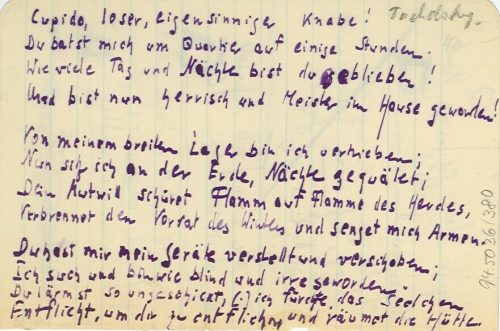 Cupido, loser, eigensinniger Knabe!
Du batst mich um Quartier auf einige Stunden.
Wie viele Tag und Nächte bist du geblieben!
Und bist nun herrisch und Meister im Hause geworden!
Von meinem breiten Lager bin ich vertrieben;
Nun sitz ich an der Erde, Nächte gequälet;
Dein Mutwill schüret Flamm auf Flamme des Herdes,
Verbrennet den Vorrat des Winters und senget mich Armen.
Du hast mir mein Geräte verstellt und verschoben;
Ich such und bin wie blind und irre geworden.
Du lärmst so ungeschickt, (:) ich fürchte, das Seelchen
Entflieht, um dir zu entfliehn, und räumet die Hütte
945036/380